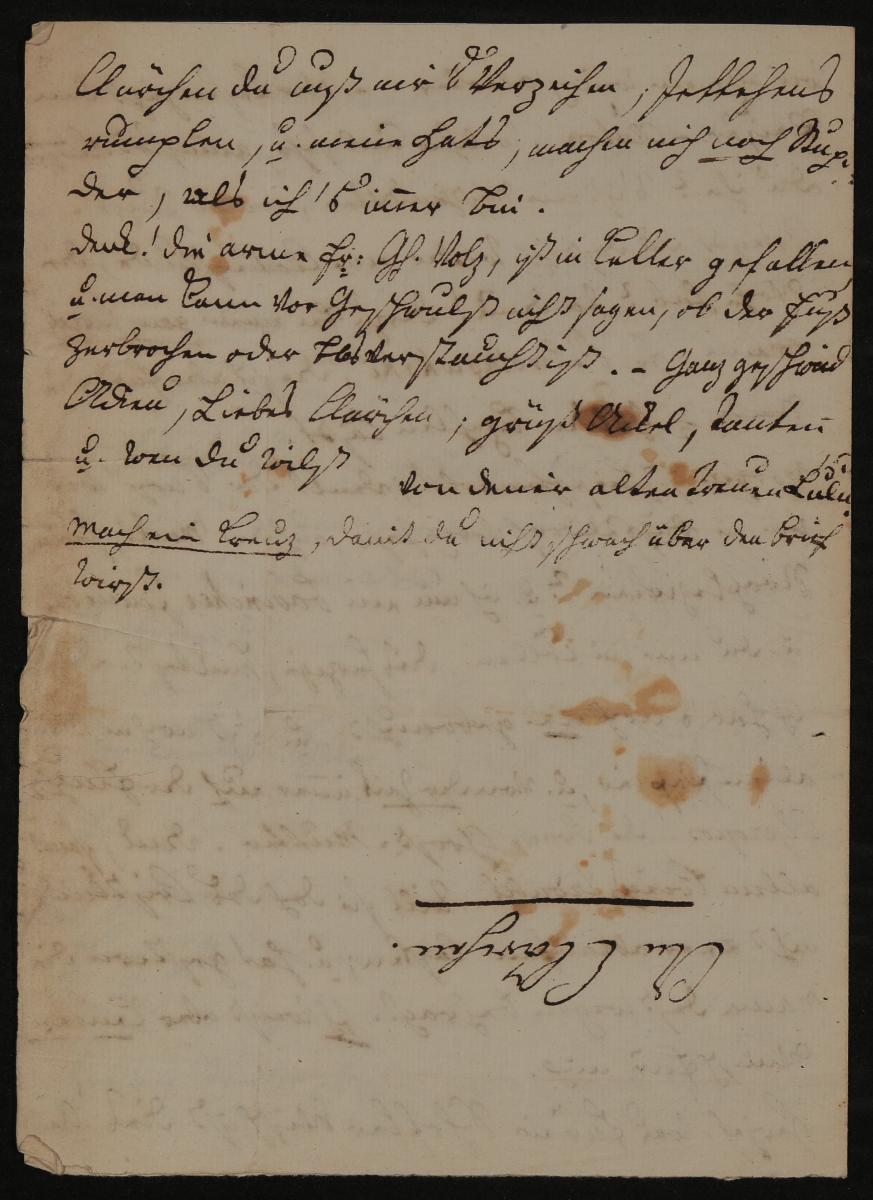 Clärchen du must mir's Verzeihen, Jettchens
rumplen, u. meine Hats, machen mich noch Stupi-
der, als ich's immer bin.
denk! die arme Fr: Gh. Volz, ist in Keller gefallen,
u. man kann vor Geschwulst nicht sagen, ob der Fuß
zerbrochen oder blos verstaucht ist. – Ganz geschwind
Adieu, Liebes Clärchen, grüße Onkel, Tanten
u. wen du wilst
von deiner alten treuen Lulu.
Mach ein Kreuz, damit du nicht schwach über den brief
wirst.
An Clärchen.